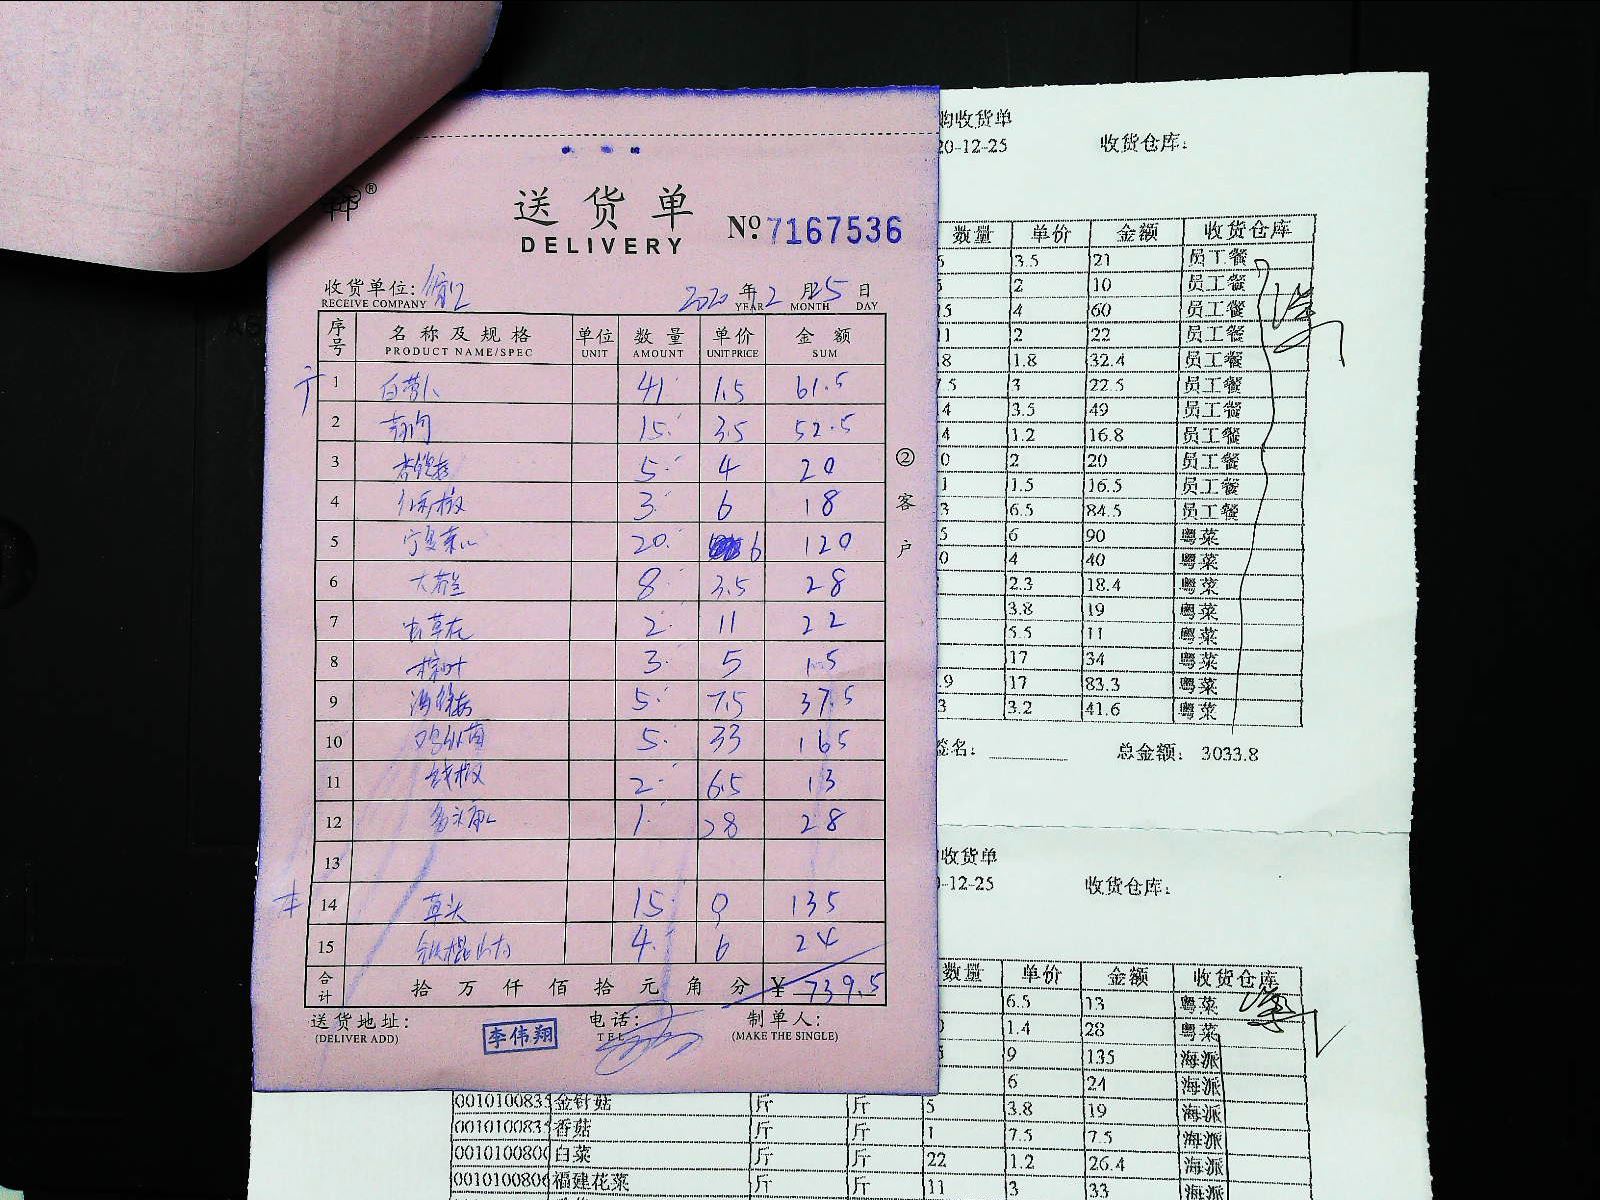 送货单
DELIVERY
№ 7167536
收货单位:
RECEIVE COMPANY
2020 年 12 月 25 日
YEAR MONTH DAY
序号 名称及规格 单位 数量 单价 金额
PRODUCT NAME/SPEC UNIT AMOUNT UNIT PRICE SUM
1 白萝卜 41 1.5 61.5
2 15 3.5 52.5
3 杏鲍菇 5 4 20
4 3 6 18
5 宁夏菜心 20 6 120
6 8 3.5 28
7 虫草花 2 11 22
8 3 5 15
9 5 7.5 37.5
10 5 33 165
11 2 6.5 13
12 1 28 28
13
14 草头 15 9 135
15 铁棍山药 4 6 24
合计 拾 万 仟 佰 拾 元 角 分 ¥ 739.5
送货地址: 电话: 制单人:
(DELIVER ADD) TEL (MAKE THE SINGLE)
李伟翔
②客户
购收货单
20-12-25 收货仓库:
数量 单价 金额 收货仓库
3.5 21 员工餐
2 10 员工餐
5 4 60 员工餐
1 2 22 员工餐
8 1.8 32.4 员工餐
7.5 3 22.5 员工餐
4 3.5 49 员工餐
4 1.2 16.8 员工餐
0 2 20 员工餐
1 1.5 16.5 员工餐
3 6.5 84.5 员工餐
5 6 90 粤菜
0 4 40 粤菜
2.3 18.4 粤菜
3.8 19 粤菜
5.5 11 粤菜
17 34 粤菜
.9 17 83.3 粤菜
3 3.2 41.6 粤菜
签名: 总金额: 3033.8
收货单
0-12-25 收货仓库:
数量 单价 金额 收货仓库
6.5 13 粤菜
0 1.4 28 粤菜
5 9 135 海派
6 24 海派
001010083 金针菇 斤 斤 5 3.8 19 海派
001010083 香菇 斤 斤 1 7.5 7.5 海派
001010080 白菜 斤 斤 22 1.2 26.4 海派
001010080 福建花菜 斤 斤 11 3 33 海派